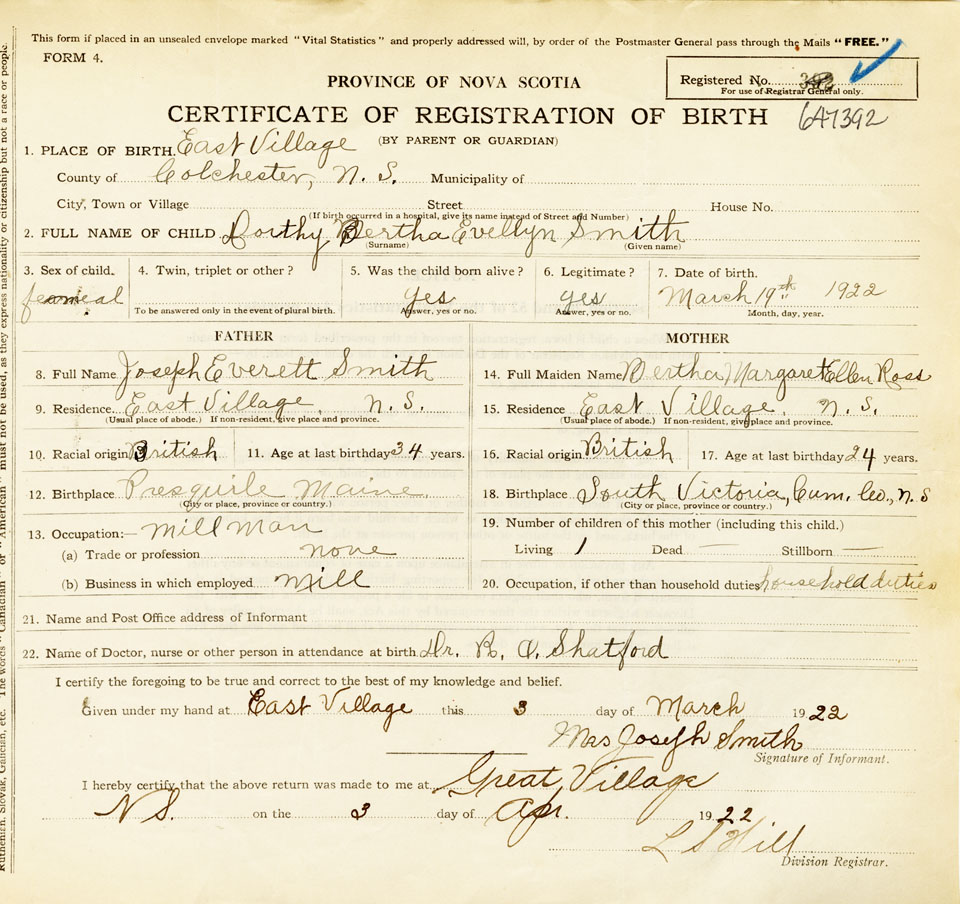 This form if placed in an unsealed envelope marked "Vital Statistics" and properly addressed will, by order of the Postmaster General pass through the Mails "FREE."
FORM 4.
PROVINCE OF NOVA SCOTIA
Registered No.
For use of Registrar General only.
CERTIFICATE OF REGISTRATION OF BIRTH 647392
(BY PARENT OR GUARDIAN)
1. PLACE OF BIRTH East Village
County of Colchester, N. S. Municipality of
City, Town or Village Street House No.
(If birth occurred in a hospital, give its name instead of Street and Number)
2. FULL NAME OF CHILD Dorthy Bertha Evellyn Smith
(Surname) (Given name)
3. Sex of child. 4. Twin, triplet or other? 5. Was the child born alive? 6. Legitimate? 7. Date of birth.
feameal yes yes March 19th 1922
To be answered only in the event of plural birth. Answer, yes or no. Answer, yes or no. Month, day, year.
FATHER MOTHER
8. Full Name Joseph Everett Smith 14. Full Maiden Name Bertha Margaret Ellen Ross
9. Residence East Village, N. S. 15. Residence East Village, N. S.
(Usual place of abode.) If non-resident, give place and province. (Usual place of abode.) If non-resident, give place and province.
10. Racial origin British 11. Age at last birthday 34 years. 16. Racial origin British 17. Age at last birthday 24 years.
12. Birthplace Presquile Maine 18. Birthplace South Victoria, Cum. Co., N. S
(City or place, province or country.) (City or place, province or country.)
13. Occupation:— mill man 19. Number of children of this mother (including this child.)
(a) Trade or profession none Living 1 Dead — Stillborn —
(b) Business in which employed mill 20. Occupation, if other than household duties household duties
21. Name and Post Office address of Informant
22. Name of Doctor, nurse or other person in attendance at birth Dr. R. A. Shatford
I certify the foregoing to be true and correct to the best of my knowledge and belief.
Given under my hand at East Village this 3 day of March 1922
Mrs Joseph Smith
Signature of Informant.
I hereby certify that the above return was made to me at Great Village
N S. on the 3 day of Apr. 1922
L S Hill
Division Registrar.
Ruthenian, Slovak, Galician, etc. The words "Canadian" or "American" must not be used, as they express nationality or citizenship but not a race or people.